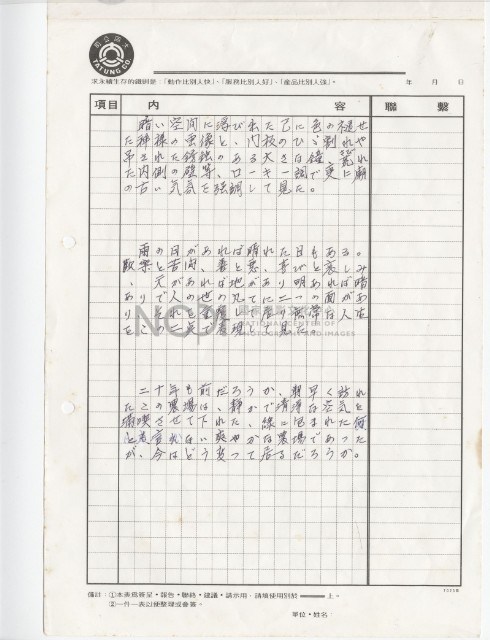 TATUNG CO.
求永續生存的鐵則是:「動作比別人快」、「服務比別人好」、「產品比別人強」。
年 月 日
項目 內 容 聯繫
暗い空間に浮び出た已に色の褪せ
た神様の画像と、門板のひび割れや
吊された 大きな鐘、荒れ
た内側の壁等、ローキー調で更に廟
の古い気氛を強調して見た。
雨の日があれば晴れた日もある。
歓楽と苦悶、善と悪、喜びと哀しみ
、天があれば地があり明あれば暗
ありで人の世の凡てに二つの面があ
り、それを 居り無常な人生
をこの二点で表現して見た。
二十年も前だろうか、朝早く訪れ
たこの農場は、静かで清浄な空気を
満喫させて下れた、緑に包まれた何
とも言えない爽やかな農場であった
が、今はどう変って居るだろうか。
NCPI
NATIONAL CENTER OF
PHOTOGRAPHY AND IMAGES
備註:①本表為簽呈・報告・聯絡・建議・請示用,請填使用別於 上。
②一件一表以便整理或會簽。
單位・姓名: